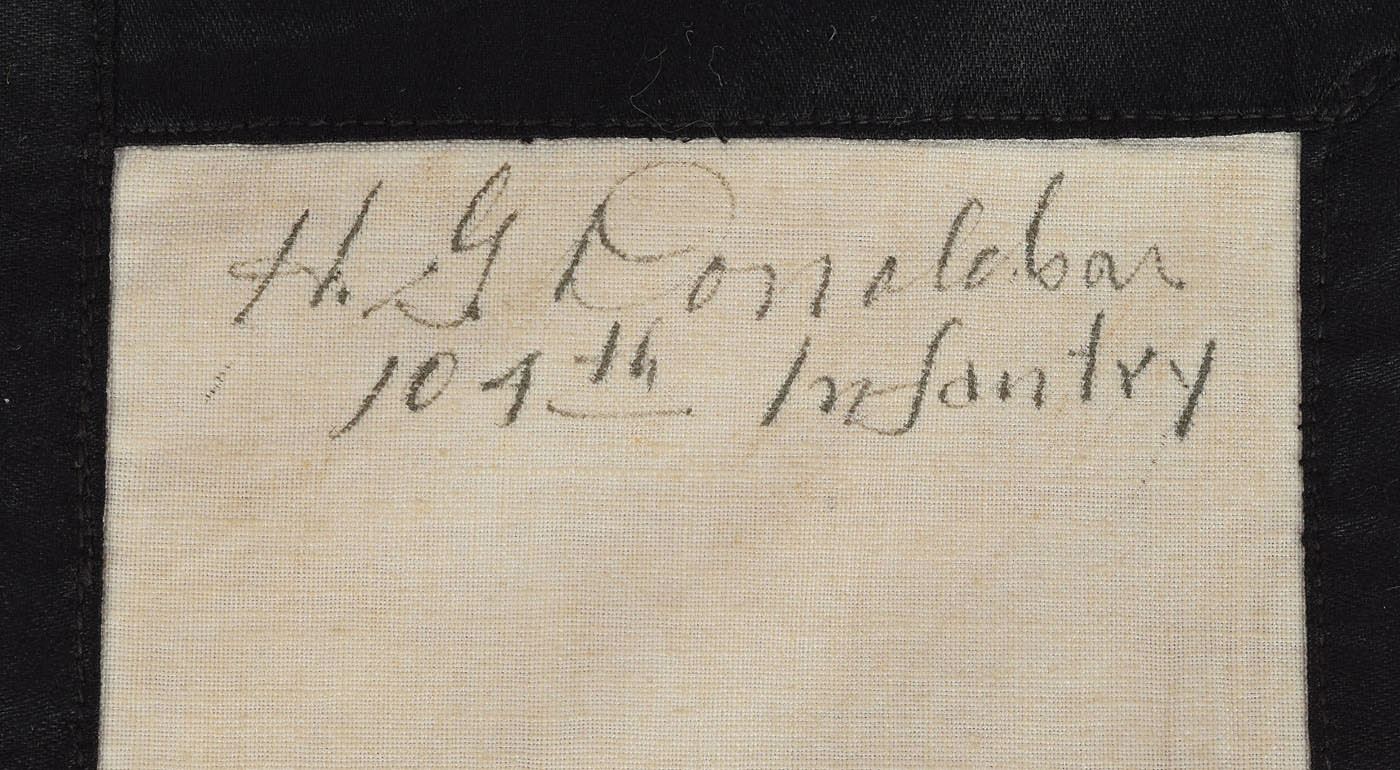 H. G Donaldson
104th Infantry